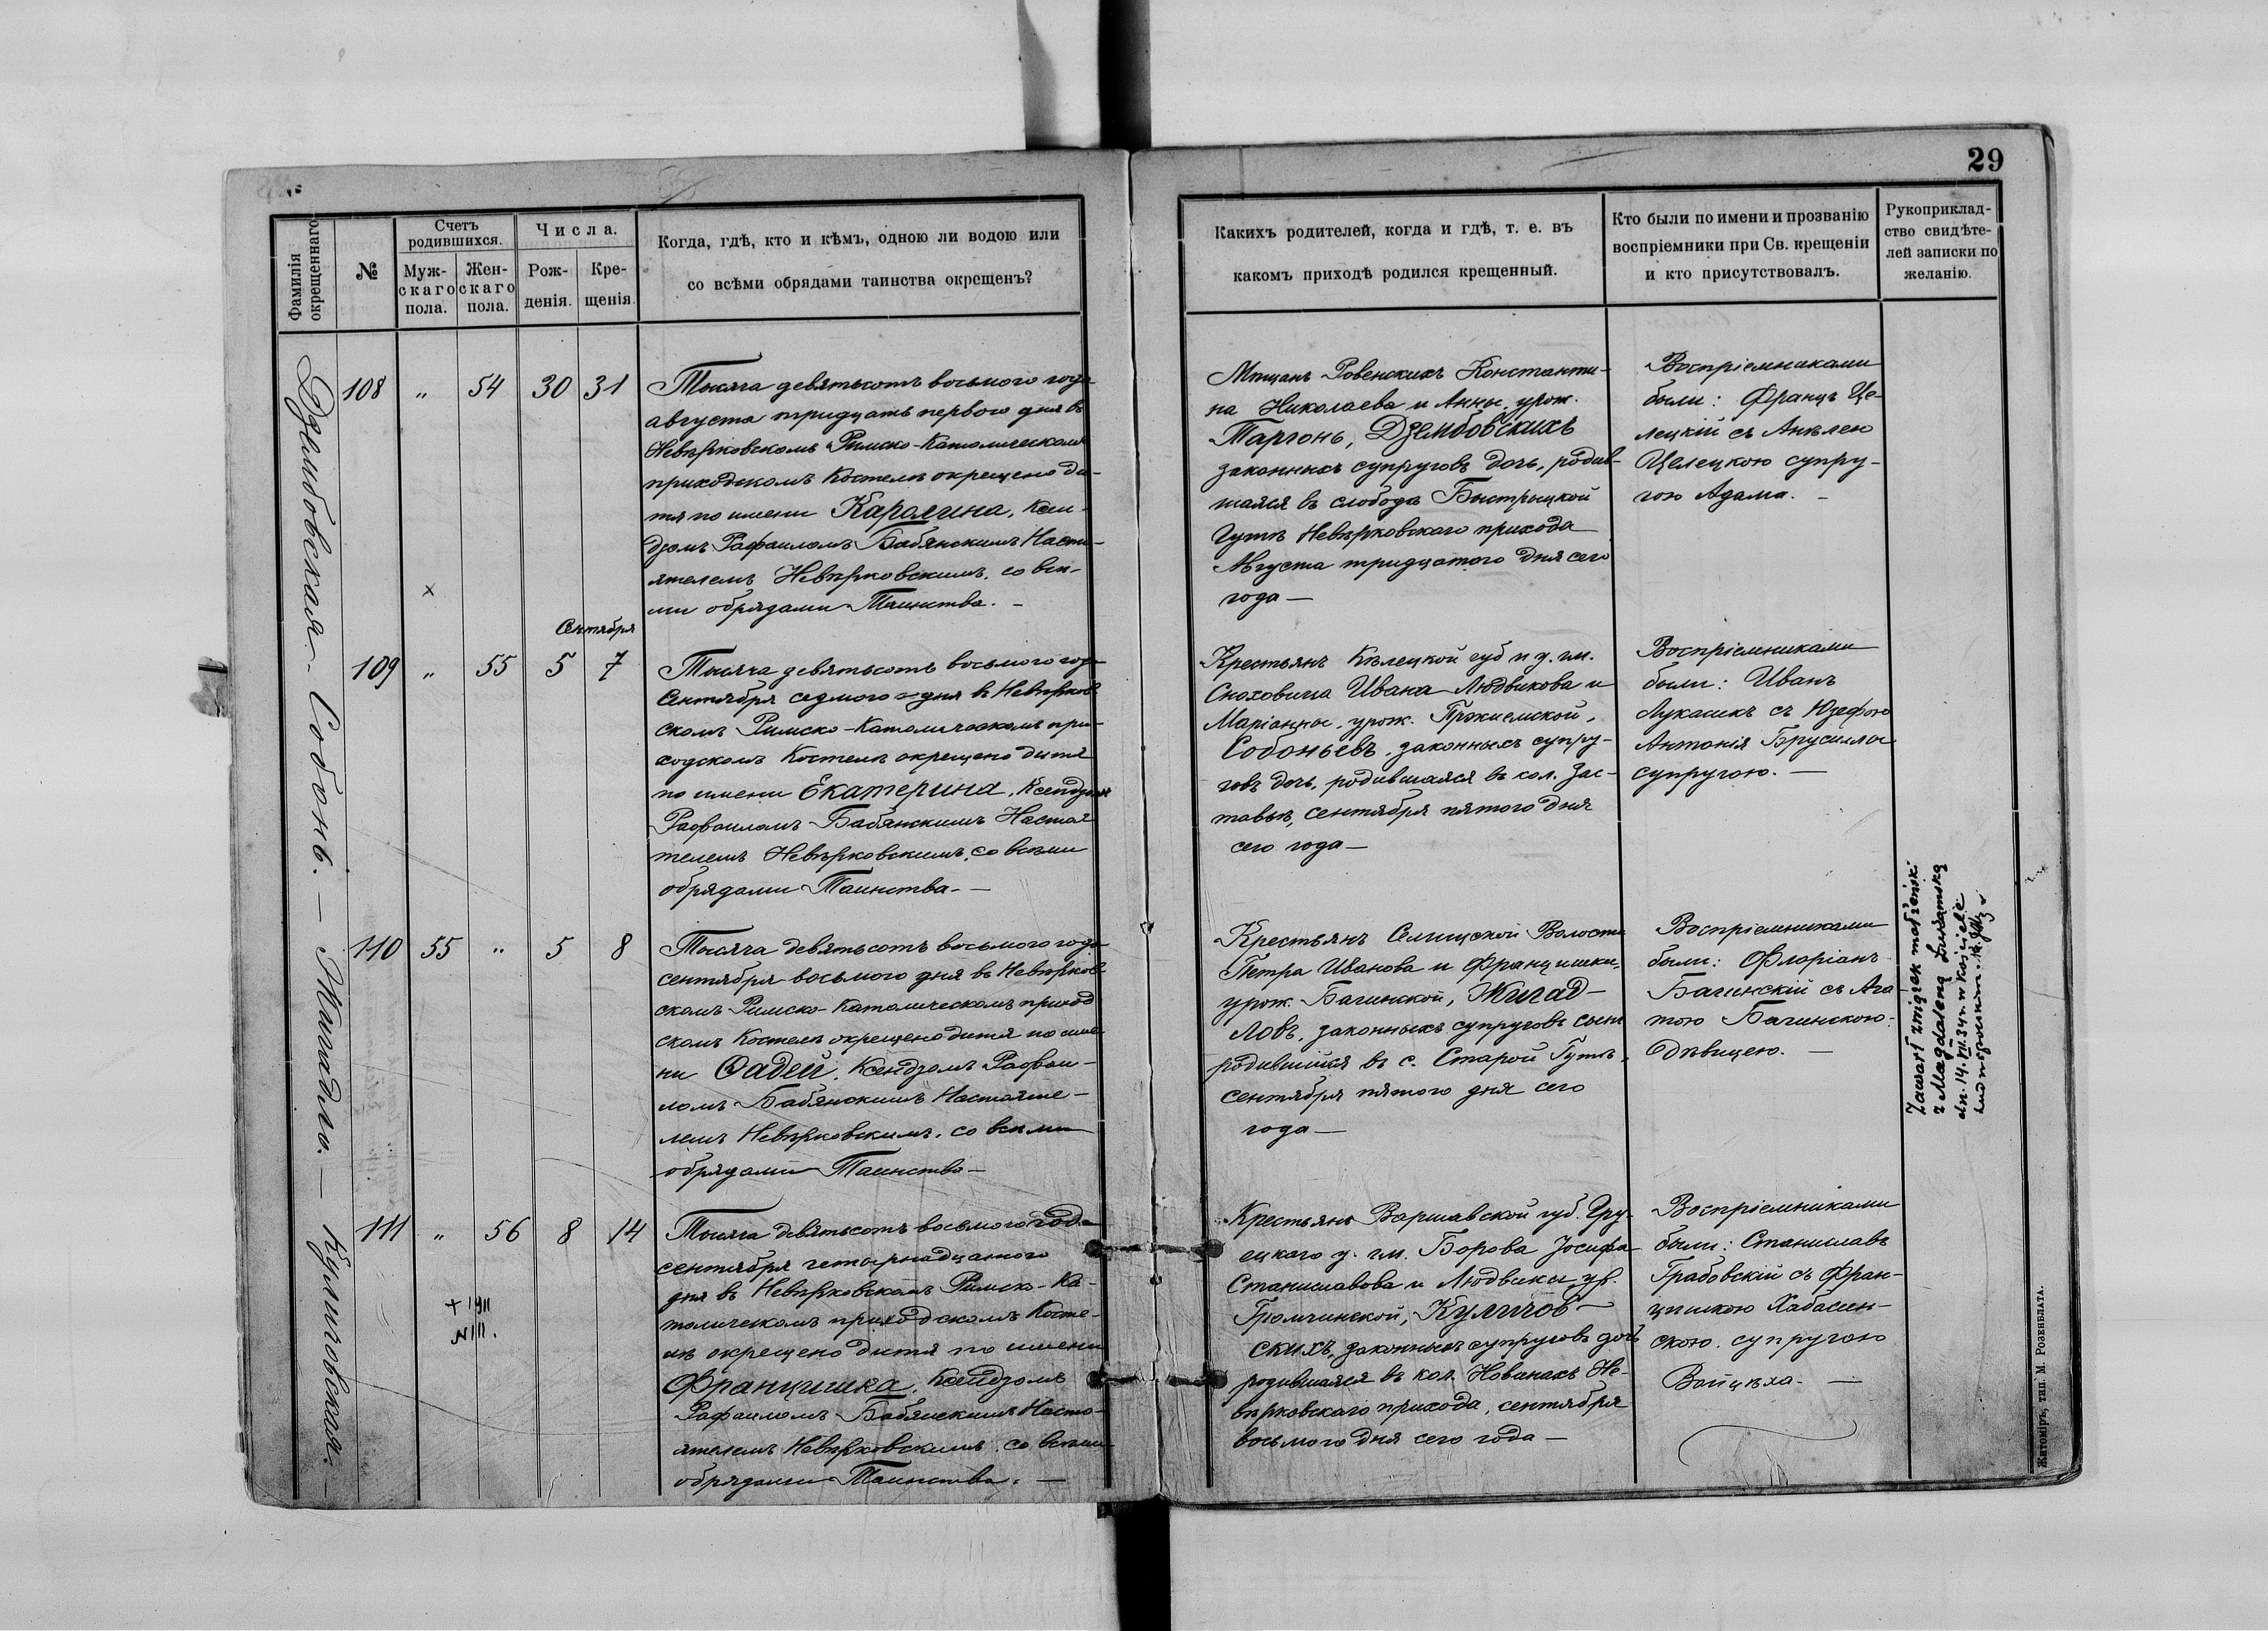 29
Фамилія окрещеннаго
№
Счетъ родившихся.
Мужскаго пола.
Женскаго пола.
Числа.
Рожденія.
Крещенія.
Когда, гдѣ, кто и кѣмъ, одною ли водою или
со всѣми обрядами таинства окрещенъ?
Какихъ родителей, когда и гдѣ, т. е. въ
какомъ приходѣ родился крещенный.
Кто были по имени и прозванію
воспріемники при Св. крещеніи
и кто присутствовалъ.
Рукоприклад-
ство свидѣте-
лей записки по
желанію.
Дзембовская.
108 " 54 30 31
Тысяча девятьсотъ восьмого года
августа тридцать первого дня въ
Невѣрковскомъ Римско-Католическомъ
приходскомъ Костелѣ окрещено ди-
тя по имени Каролина, Ксен-
дзомъ Рафаиломъ Бабянскимъ Насто-
ятелемъ Невѣрковскимъ, со всѣ-
ми обрядами Таинства. –
Мѣщанъ Ровенскихъ Константи-
на Николаева и Анны, урож.
Таргонь, Дзембовскихъ
законныхъ супруговъ дочь, родив-
шаяся въ слободѣ Быстрыцкой
Гутѣ Невѣрковскаго прихода
Августа тридцатого дня сего
года —
Воспріемниками
были: Францъ Це-
лецкій съ Анѣлею
Целецкою супру-
гою Адама. –
x
Сентября
Собонь. —
109 " 55 5 7
Тысяча девятьсотъ восьмого года
Сентября седмого дня въ Невѣрков
скомъ Римско-Католическомъ при-
ходскомъ Костелѣ окрещено дитя
по имени Екатерина, Ксендзомъ
Рафаиломъ Бабянскимъ Настоя
телемъ Невѣрковскимъ, со всѣми
обрядами Таинства. —
Крестьянъ Кѣлецкой губ и у. гм.
Сноховица Ивана Людвикова и
Маріанны, урож. Пржиемской,
Собоньевъ, законныхъ супру-
говъ дочь, родившаяся въ кол. Зас-
тавьѣ, сентября пятого дня
сего года —
Воспріемниками
были: Иванъ
Лукасикъ съ Юзефою
Антонія Брусилы
супругою. —
Жигадло. —
110 55 " 5 8
Тысяча девятьсотъ восьмого года
сентября восьмого дня въ Невѣрков-
скомъ Римско-Католическомъ приход
скомъ Костелѣ окрещено дитя по име-
ни Фадей, Ксендзомъ Рафаи-
ломъ Бабянскимъ Настояте-
лемъ Невѣрковскимъ, со всѣми
обрядами Таинства —
Крестьянъ Селищской Волости
Петра Иванова и Францишки,
урож. Багинской, Жигад-
ловъ, законныхъ супруговъ сынъ
родившійся въ с. Старой Гутѣ,
сентября пятого дня сего
года —
Воспріемниками
были: Флоріанъ
Багинскій съ Ага-
тою Багинскою
Дѣвицею. —
Zawarł związek małżeński
z Magdaleną
dn. 14. VII. 34 r. w kościele
Куличовская. —
111 " 56 8 14
Тысяча девятьсотъ восьмого года
сентября четырнадцатого
дня въ Невѣрковскомъ Римско-Ка-
толическомъ приходскомъ Косте-
лѣ окрещено дитя по имени
Францишка, Ксендзомъ
Рафаиломъ Бабянскимъ Насто-
ятелемъ Невѣрковскимъ, со всѣми
обрядами Таинства. —
Крестьянъ Варшавской губ. Гру-
ецкаго у. гм. Борова Іосифа
Станиславова и Людвики ур.
Громчинской, Куличов-
скихъ, законныхъ супруговъ дочь
родившаяся въ кол. Новинахъ Не-
вѣрковскаго прихода, сентября
восьмого дня сего года —
Воспріемниками
были: Станиславъ
Грабовскій съ Фран-
цишкою Хабасин-
скою, супругою
Войцѣха. —
+ 1911
N 111.
Житоміръ, тип. М. Розенблата.